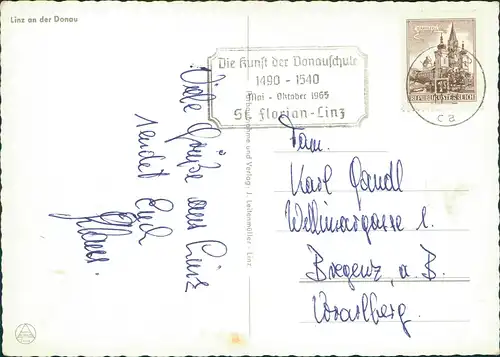 Linz an der Donau
Die Kunst der Donauschule
1490 - 1540
Mai - Oktober 1965
St. Florian-Linz
REPUBLIK ÖSTERREICH
ca
Viele Grüße aus Linz
sendet Euch
und Verlag: J. Leitenmüller, Linz
Fam.
Karl Gandl
1.
Bregenz, a. B.
Vorarlberg.